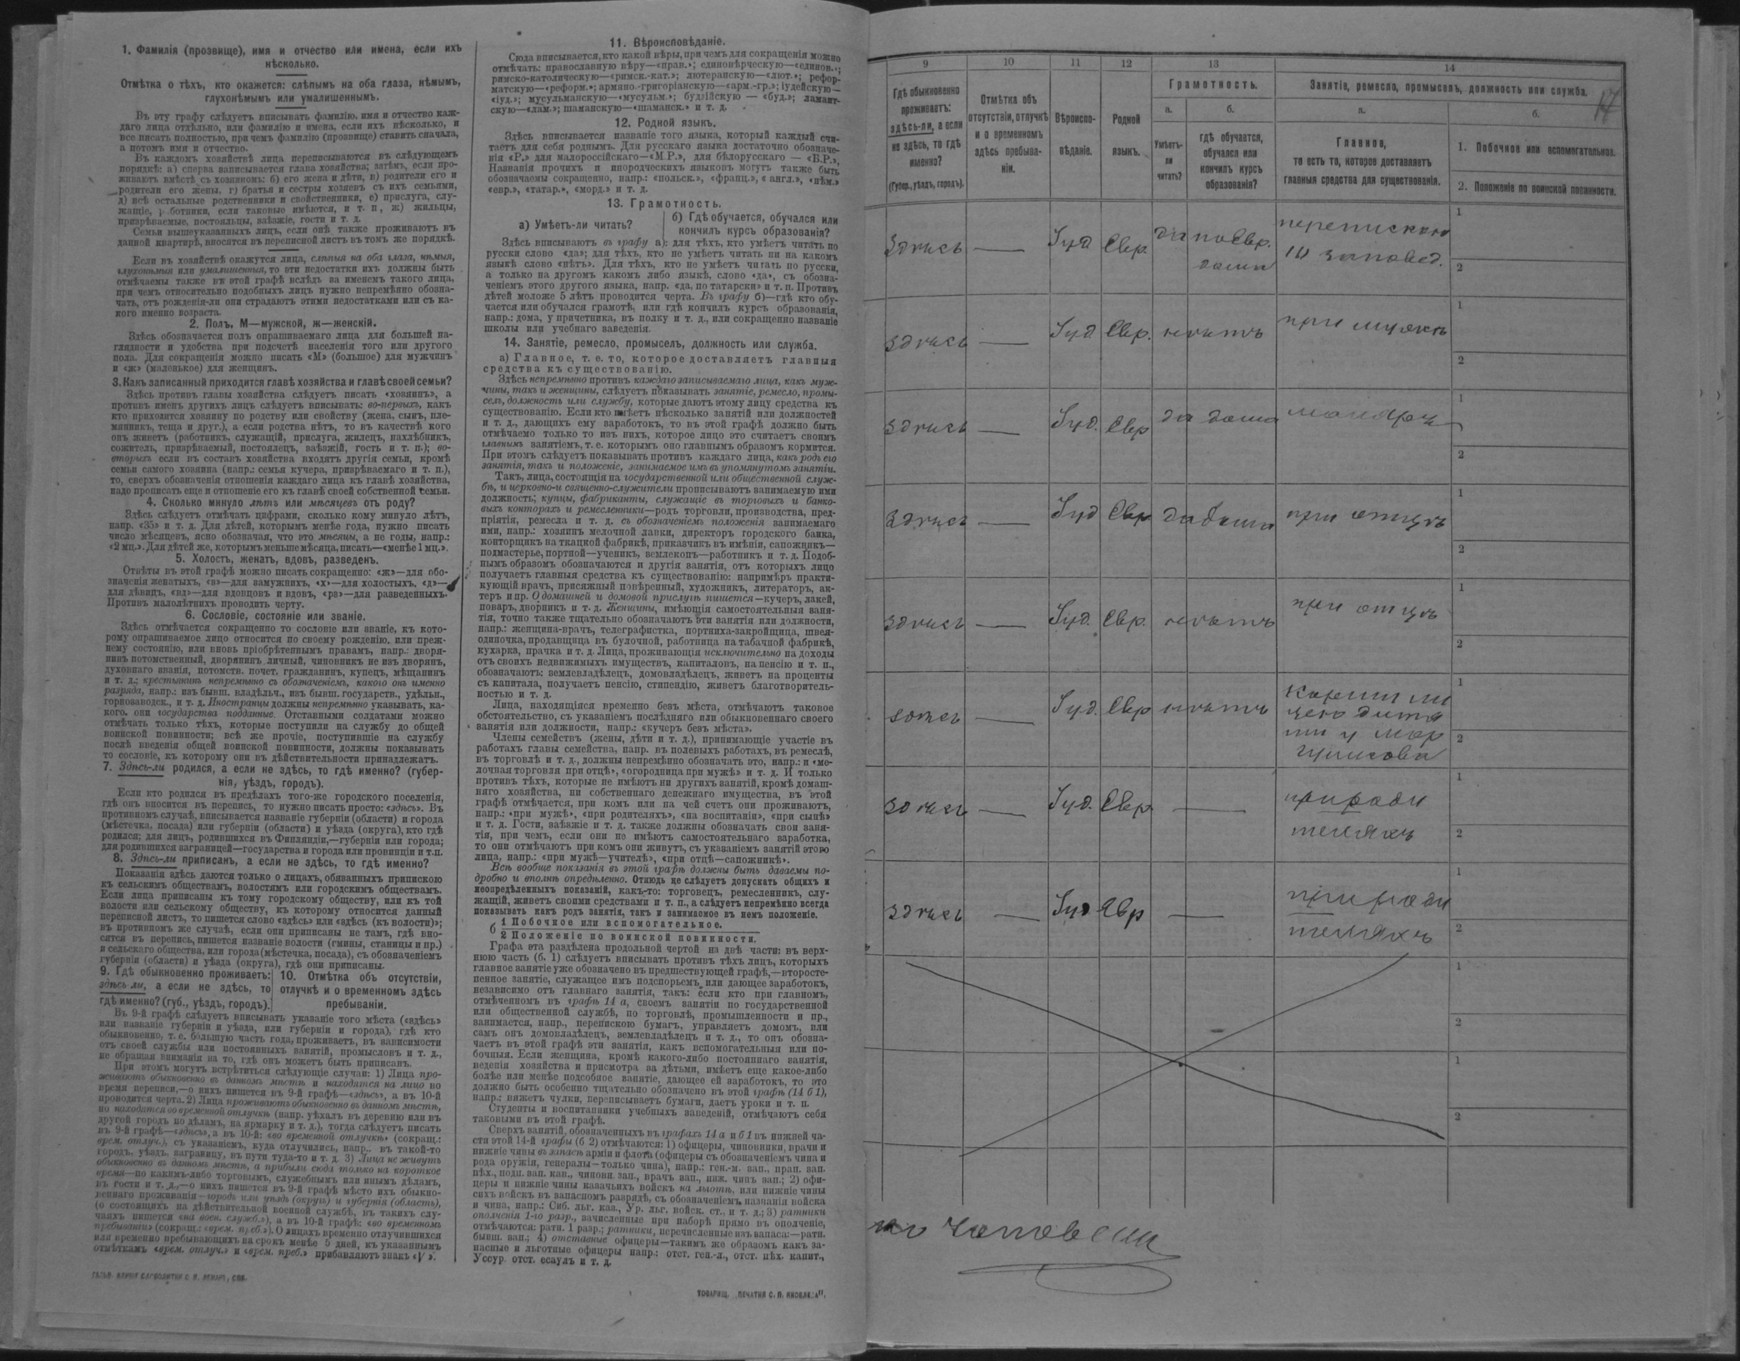 1. Фамилія (прозвище), имя и отчество или имена, если ихъ
нѣсколько.
Отмѣтка о тѣхъ, кто окажется: слѣпымъ на оба глаза, нѣмымъ,
глухонѣмымъ или умалишеннымъ.
Въ эту графу слѣдуетъ вписывать фамилію, имя и отчество каж-
даго лица отдѣльно, или фамилію и имена, если ихъ нѣсколько, и
все писать полностью, при чемъ фамилію (прозвище) ставить сначала,
а потомъ имя и отчество.
Въ каждомъ хозяйствѣ лица переписываются въ слѣдующемъ
порядкѣ: а) сперва записывается глава хозяйства; затѣмъ, если про-
живаютъ вмѣстѣ съ хозяиномъ: б) его жена и дѣти, в) родители его и
родители его жены, г) братья и сестры хозяевъ съ ихъ семьями,
д) всѣ остальные родственники и свойственники, е) прислуга, слу-
жащіе, работники, если таковые имѣются, и т. п., ж) жильцы,
призрѣваемые, постояльцы, заѣзжіе, гости и т. д.
Семьи вышеуказанныхъ лицъ, если онѣ также проживаютъ въ
данной квартирѣ, вносятся въ переписной листъ въ томъ же порядкѣ.
Если въ хозяйствѣ окажутся лица, слѣпыя на оба глаза, нѣмыя,
глухонѣмыя или умалишенныя, то эти недостатки ихъ должны быть
отмѣчаемы также въ этой графѣ вслѣдъ за именемъ такого лица,
при чемъ относительно подобныхъ лицъ нужно непремѣнно обозна-
чать, отъ рожденія-ли они страдаютъ этими недостатками или съ ка-
кого именно возраста.
2. Полъ, М—мужской, ж—женскій.
Здѣсь обозначается полъ опрашиваемаго лица для большей на-
глядности и удобства при подсчетѣ населенія того или другого
пола. Для сокращенія можно писать «М» (большое) для мужчинъ
и «ж» (маленькое) для женщинъ.
3. Какъ записанный приходится главѣ хозяйства и главѣ своей семьи?
Здѣсь противъ главы хозяйства слѣдуетъ писать «хозяинъ», а
противъ именъ другихъ лицъ слѣдуетъ вписывать: во-первыхъ, какъ
кто приходится хозяину по родству или свойству (жена, сынъ, пле-
мянникъ, теща и друг.), а если родства нѣтъ, то въ качествѣ кого
онъ живетъ (работникъ, служащій, прислуга, жилецъ, нахлѣбникъ,
сожитель, призрѣваемый, постоялецъ, заѣзжій, гость и т. п.); во-
вторыхъ если въ составъ хозяйства входятъ другія семьи, кромѣ
семьи самого хозяина (напр.: семья кучера, призрѣваемаго и т. п.),
то, сверхъ обозначенія отношенія каждаго лица къ главѣ хозяйства,
надо прописать еще и отношеніе его къ главѣ своей собственной семьи.
4. Сколько минуло лѣтъ или мѣсяцевъ отъ роду?
Здѣсь слѣдуетъ отмѣчать цифрами, сколько кому минуло лѣтъ,
напр. «35» и т. д. Для дѣтей, которымъ менѣе года, нужно писать
число мѣсяцевъ, ясно обозначая, что это мѣсяцы, а не годы, напр.:
«2 мц.». Для дѣтей же, которымъ меньше мѣсяца, писать—«менѣе 1 мц.».
5. Холостъ, женатъ, вдовъ, разведенъ.
Отвѣты въ этой графѣ можно писать сокращенно: «ж»—для обо-
значенія женатыхъ, «з»—для замужнихъ, «х»—для холостыхъ, «д»—
для дѣвицъ, «вд»—для вдовцовъ и вдовъ, «рз»—для разведенныхъ.
Противъ малолѣтнихъ проводить черту.
6. Сословіе, состояніе или званіе.
Здѣсь отмѣчается сокращенно то сословіе или званіе, къ кото-
рому опрашиваемое лицо относится по своему рожденію, или преж-
нему состоянію, или вновь пріобрѣтеннымъ правамъ, напр.: дворя-
нинъ потомственный, дворянинъ личный, чиновникъ не изъ дворянъ,
духовнаго званія, потомств. почет. гражданинъ, купецъ, мѣщанинъ
и т. д.; крестьянинъ непремѣнно съ обозначеніемъ, какого онъ именно
разряда, напр.: изъ бывш. владѣльч., изъ бывш. государств., удѣльн.,
горнозаводск., и т. д. Иностранцы должны непремѣнно указывать, ка-
кого, они государства подданные. Отставными солдатами можно
отмѣчать только тѣхъ, которые поступили на службу до общей
воинской повинности; всѣ же прочіе, поступившіе на службу
послѣ введенія общей воинской повинности, должны показывать
то сословіе, къ которому они въ дѣйствительности принадлежатъ.
7. Здѣсь-ли родился, а если не здѣсь, то гдѣ именно? (губер-
нія, уѣздъ, городъ).
Если кто родился въ предѣлахъ того-же городского поселенія,
гдѣ онъ вносится въ перепись, то нужно писать просто: «здѣсь». Въ
противномъ случаѣ, вписывается названіе губерніи (области) и города
(мѣстечка, посада) или губерніи (области) и уѣзда (округа), кто гдѣ
родился; для лицъ, родившихся въ Финляндіи,—губерніи или города;
для родившихся заграницей—государства и города или провинціи и т.п.
8. Здѣсь-ли приписанъ, а если не здѣсь, то гдѣ именно?
Показанія здѣсь даются только о лицахъ, обязанныхъ припискою
къ сельскимъ обществамъ, волостямъ или городскимъ обществамъ.
Если лица приписаны къ тому городскому обществу, или къ той
волости или сельскому обществу, къ которому относится данный
переписной листъ, то пишется слово «здѣсь» или «здѣсь (къ волости)»;
въ противномъ же случаѣ, если они приписаны не тамъ, гдѣ вно-
сятся въ перепись, пишется названіе волости (гмины, станицы и пр.)
и сельскаго общества, или города (мѣстечка, посада), съ обозначеніемъ
губерніи (области) и уѣзда (округа), гдѣ они приписаны.
9. Гдѣ обыкновенно проживаетъ:
здѣсь ли, а если не здѣсь, то
гдѣ именно? (губ., уѣздъ, городъ).
10. Отмѣтка объ отсутствіи,
отлучкѣ и о временномъ здѣсь
пребываніи.
Въ 9-й графѣ слѣдуетъ вписывать указаніе того мѣста («здѣсь»
или названіе губерніи и уѣзда, или губерніи и города), гдѣ кто
обыкновенно, т. е. большую часть года, проживаетъ, въ зависимости
отъ своей службы или постоянныхъ занятій, промысловъ и т. д.,
не обращая вниманія на то, гдѣ онъ можетъ быть приписанъ.
При этомъ могутъ встрѣтиться слѣдующіе случаи: 1) Лица про-
живаютъ обыкновенно въ данномъ мѣстѣ и находятся на лицо во
время переписи,—о нихъ пишется въ 9-й графѣ—«здѣсь», а въ 10-й
проводится черта. 2) Лица проживаютъ обыкновенно въ данномъ мѣстѣ,
но находятся во временной отлучкѣ (напр. уѣхалъ въ деревню или въ
другой городъ по дѣламъ, на ярмарку и т. д.), тогда слѣдуетъ писать
въ 9-й графѣ—«здѣсь», а въ 10-й: «во временной отлучкѣ» (сокращ.:
врем. отлуч.), съ указаніемъ, куда отлучились, напр., въ такой-то
городъ, уѣздъ, заграницу, въ пути туда-то и т. д. 3) Лица не живутъ
обыкновенно въ данномъ мѣстѣ, а прибыли сюда только на короткое
время—по какимъ-либо торговымъ, служебнымъ или инымъ дѣламъ,
въ гости и т. д.,—о нихъ пишется въ 9-й графѣ мѣсто ихъ обыкно-
веннаго проживанія—городъ или уѣздъ (округъ) и губернія (область),
(о состоящихъ на дѣйствительной военной службѣ, въ такихъ слу-
чаяхъ пишется «на воен. службѣ»), а въ 10-й графѣ: «во временномъ
пребываніи» (сокращ.: «врем. преб.»). О лицахъ временно отлучившихся
или временно пребывающихъ на срокъ менѣе 5 дней, къ указаннымъ
отмѣткамъ «врем. отлуч.» и «врем. преб.» прибавляютъ знакъ «V».
11. Вѣроисповѣданіе.
Сюда вписывается, кто какой вѣры, при чемъ для сокращенія можно
отмѣчать: православную вѣру—«прав.»; единовѣрческую—«единов.»;
римско-католическую—«римск.-кат.»; лютеранскую—«лют.»; рефор-
матскую—«реформ.»; армяно-григоріанскую—«арм.-гр.»; іудейскую—
«іуд.»; мусульманскую—«мусульм.»; буддійскую — «буд.»; ламаит-
скую—«лам.»; шаманскую—«шаманск.» и т. д.
12. Родной языкъ.
Здѣсь вписывается названіе того языка, который каждый счи-
таетъ для себя роднымъ. Для русскаго языка достаточно обозначе-
нія «Р.» для малороссійскаго—«М.Р.», для бѣлорусскаго — «Б.Р.»,
Названія прочихъ и инородческихъ языковъ могутъ также быть
обозначаемы сокращенно, напр.: «польск.», «франц.», «англ.», «нѣм.»
«евр.», «татар.», «морд.» и т. д.
13. Грамотность.
а) Умѣетъ-ли читать?
б) Гдѣ обучается, обучался или
кончилъ курсъ образованія?
Здѣсь вписываютъ въ графу а): для тѣхъ, кто умѣетъ читать по
русски слово «да»; для тѣхъ, кто не умѣетъ читать ни на какомъ
языкѣ слово «нѣтъ». Для тѣхъ, кто не умѣетъ читать по русски,
а только на другомъ какомъ либо языкѣ, слово «да», съ обозна-
ченіемъ этого другого языка, напр. «да, по татарски» и т. п. Противъ
дѣтей моложе 5 лѣтъ проводится черта. Въ графу б)—гдѣ кто обу-
чается или обучался грамотѣ, или гдѣ кончилъ курсъ образованія,
напр.: дома, у причетника, въ полку и т. д., или сокращенно названіе
школы или учебнаго заведенія.
14. Занятіе, ремесло, промыселъ, должность или служба.
а) Главное, т. е. то, которое доставляетъ главныя
средства къ существованію.
Здѣсь непремѣнно противъ каждаго записываемаго лица, какъ муж-
чины, такъ и женщины, слѣдуетъ показывать занятіе, ремесло, промы-
селъ, должность или службу, которые даютъ этому лицу средства къ
существованію. Если кто имѣетъ нѣсколько занятій или должностей
и т. д., дающихъ ему заработокъ, то въ этой графѣ должно быть
отмѣчаемо только то изъ нихъ, которое лицо это считаетъ своимъ
главнымъ занятіемъ, т. е. которымъ оно главнымъ образомъ кормится.
При этомъ слѣдуетъ показывать противъ каждаго лица, какъ родъ его
занятія, такъ и положеніе, занимаемое имъ въ упомянутомъ занятіи.
Такъ, лица, состоящія на государственной или общественной служ-
бѣ, и церковно-и священно-служители прописываютъ занимаемую ими
должность; купцы, фабриканты, служащіе въ торговыхъ и банко-
выхъ конторахъ и ремесленники—родъ торговли, производства, пред-
пріятія, ремесла и т. д. съ обозначеніемъ положенія занимаемаго
ими, напр.: хозяинъ мелочной лавки, директоръ городского банка,
конторщикъ на ткацкой фабрикѣ, приказчикъ въ имѣніи, сапожникъ—
подмастерье, портной—ученикъ, землекопъ—работникъ и т. д. Подоб-
нымъ образомъ обозначаются и другія занятія, отъ которыхъ лицо
получаетъ главныя средства къ существованію: напримѣръ практи-
кующій врачъ, присяжный повѣренный, художникъ, литераторъ, ак-
теръ и пр. О домашней и домовой прислугѣ пишется—кучеръ, лакей,
поваръ, дворникъ и т. д. Женщины, имѣющія самостоятельныя заня-
тія, точно также тщательно обозначаютъ эти занятія или должности,
напр.: женщина-врачъ, телеграфистка, портниха-закройщица, швея-
одиночка, продавщица въ булочной, работница на табачной фабрикѣ,
кухарка, прачка и т. д. Лица, проживающія исключительно на доходы
отъ своихъ недвижимыхъ имуществъ, капиталовъ, на пенсію и т. п.,
обозначаютъ: землевладѣлецъ, домовладѣлецъ, живетъ на проценты
съ капитала, получаетъ пенсію, стипендію, живетъ благотворитель-
ностью и т. д.
Лица, находящіяся временно безъ мѣста, отмѣчаютъ таковое
обстоятельство, съ указаніемъ послѣдняго или обыкновеннаго своего
занятія или должности, напр.: «кучеръ безъ мѣста».
Члены семействъ (жены, дѣти и т. д.), принимающіе участіе въ
работахъ главы семейства, напр. въ полевыхъ работахъ, въ ремеслѣ,
въ торговлѣ и т. д., должны непремѣнно обозначать это, напр.: и «ме-
лочная торговля при отцѣ», «огородница при мужѣ» и т. д. И только
противъ тѣхъ, которые не имѣютъ ни другихъ занятій, кромѣ домаш-
няго хозяйства, ни собственнаго денежнаго имущества, въ этой
графѣ отмѣчается, при комъ или на чей счетъ они проживаютъ,
напр.: «при мужѣ», «при родителяхъ», «на воспитаніи», «при сынѣ»
и т. д. Гости, заѣзжіе и т. д. также должны обозначать свои заня-
тія, при чемъ, если они не имѣютъ самостоятельнаго заработка,
то они отмѣчаютъ при комъ они живутъ, съ указаніемъ занятій этого
лица, напр.: «при мужѣ—учителѣ», «при отцѣ—сапожникѣ».
Всѣ вообще показанія въ этой графѣ должны быть даваемы по-
дробно и вполнѣ опредѣленно. Отнюдь не слѣдуетъ допускать общихъ и
неопредѣленныхъ показаній, какъ-то: торговецъ, ремесленникъ, слу-
жащій, живетъ своими средствами и т. п., а слѣдуетъ непремѣнно всегда
показывать какъ родъ занятія, такъ и занимаемое въ немъ положеніе.
б 1 Побочное или вспомогательное.
2 Положеніе по воинской повинности.
Графа эта раздѣлена продольной чертой на двѣ части: въ верх-
нюю часть (б. 1) слѣдуетъ вписывать противъ тѣхъ лицъ, которыхъ
главное занятіе уже обозначено въ предшествующей графѣ,—второсте-
пенное занятіе, служащее имъ подспорьемъ или дающее заработокъ,
независимо отъ главнаго занятія, такъ: если кто при главномъ,
отмѣченномъ въ графѣ 14 а, своемъ занятіи по государственной
или общественной службѣ, по торговлѣ, промышленности и пр.,
занимается, напр., перепискою бумагъ, управляетъ домомъ, или
самъ онъ домовладѣлецъ, землевладѣлецъ и т. д., то онъ обозна-
чаетъ въ этой графѣ эти занятія, какъ вспомогательныя или по-
бочныя. Если женщина, кромѣ какого-либо постояннаго занятія,
веденія хозяйства и присмотра за дѣтьми, имѣетъ еще какое-либо
болѣе или менѣе подсобное занятіе, дающее ей заработокъ, то это
должно быть особенно тщательно обозначено въ этой графѣ (14 б 1),
напр.: вяжетъ чулки, переписываетъ бумаги, даетъ уроки и т. п.
Студенты и воспитанники учебныхъ заведеній, отмѣчаютъ себя
таковыми въ этой графѣ.
Сверхъ занятій, обозначенныхъ въ графахъ 14 а и б 1 въ нижней ча-
сти этой 14-й графы (б 2) отмѣчаются: 1) офицеры, чиновники, врачи и
нижніе чины въ запасѣ арміи и флота (офицеры съ обозначеніемъ чина и
рода оружія, генералы—только чина), напр.: ген.-м. зап., прап. зап.
пѣх., подп. зап. кав., чиновн. зап., врачъ зап., ниж. чинъ зап.; 2) офи-
церы и нижніе чины казачьихъ войскъ на льготѣ, или нижніе чины
сихъ войскъ въ запасномъ разрядѣ, съ обозначеніемъ названія войска
и чина, напр.: Сиб. льг. каз., Ур. льг. войск. ст., и т. д.; 3) ратники
ополченія 1-го разр., зачисленные при наборѣ прямо въ ополченіе,
отмѣчаются: рати. 1 разр.; ратники, перечисленные изъ запаса:—рати.
бывш. зап.; 4) отставные офицеры—такимъ же образомъ какъ за-
пасные и льготные офицеры напр.: отст. ген.-л., отст. пѣх. капит.,
Уссур. отст. есаулъ и т. д.
9 10 11 12 13 14
Гдѣ обыкновенно
проживаетъ:
здѣсь-ли, а если
не здѣсь, то гдѣ
именно?
(Губер., уѣздъ, городъ).
Отмѣтка объ
отсутствіи, отлучкѣ
и о временномъ
здѣсь пребыва-
ніи.
Вѣроиспо-
вѣданіе.
Родной
языкъ.
Грамотность.
а.
Умѣетъ-
ли
читать?
б.
гдѣ обучается,
обучался или
кончилъ курсъ
образованія?
Занятіе, ремесло, промыселъ, должность или служба.
а.
Главное,
то есть то, которое доставляетъ
главныя средства для существованія.
б.
1. Побочное или вспомогательное.
2. Положеніе по воинской повинности.
здѣсь — Іуд Евр. да по Евр. дома перепискою 10 заповед. 1 2
здѣсь — Іуд Евр. нѣтъ при мужѣ 1 2
здѣсь — Іуд. Евр да дома маляръ 1 2
здѣсь — Іуд Евр да дома при отцѣ 1 2
здѣсь — Іуд. Евр. нѣтъ при отцѣ 1 2
здѣсь — Іуд. Евр нѣтъ 1 2
здѣсь — Іуд. Евр. — при роди
теляхъ 1 2
здѣсь — Іуд Евр — при роди
теляхъ 1 2
1 2
1 2